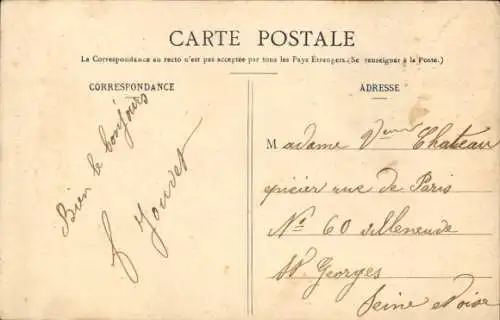 CARTE POSTALE
La Correspondance au recto n'est pas acceptée par tous les Pays Étrangers. (Se renseigner à la Poste.)
CORRESPONDANCE
ADRESSE
Bien le bonjours
Jouvet
Madame Veuve Chateau
epicier rue de Paris
No 60 villeneuve
St Georges
Seine et Oise